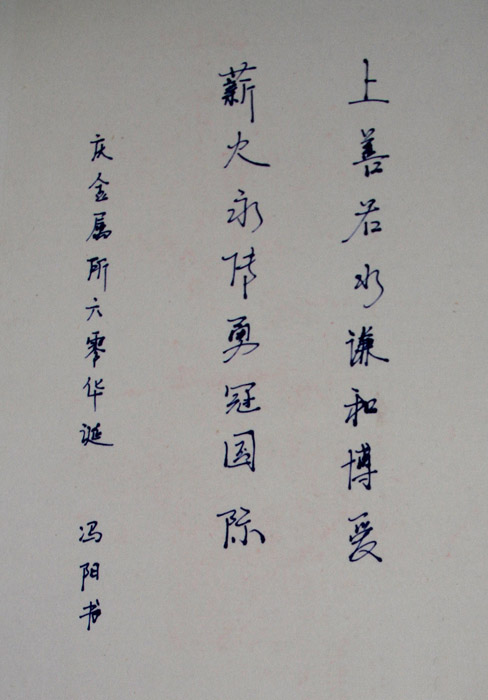 上善若水谦和博爱
薪火永传勇冠国际
庆金属所六零华诞
冯阳书